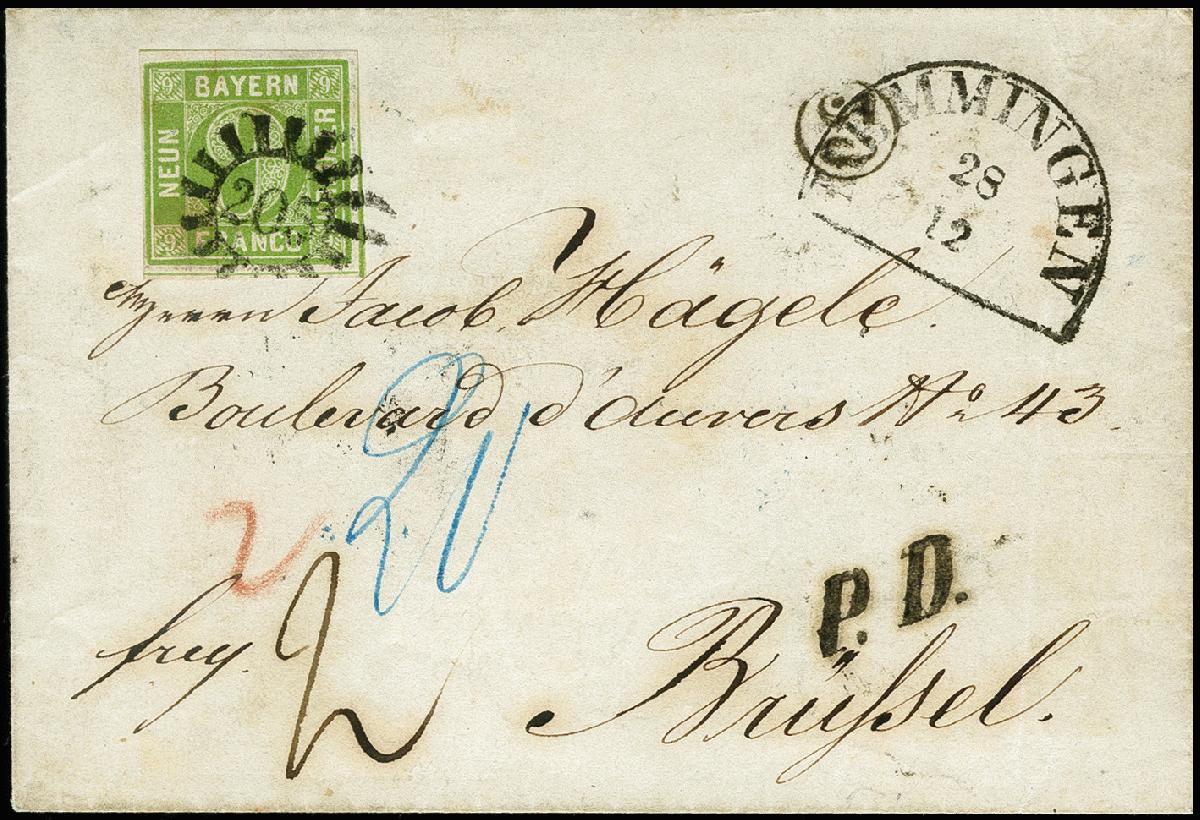 BAYERN
NEUN
FRANCO
9 9 9
MEMMINGEN
28
12
Herrn Jacob Hägele.
Boulevard d'auvers No 43
P. D.
frey.
2
Brüssel.